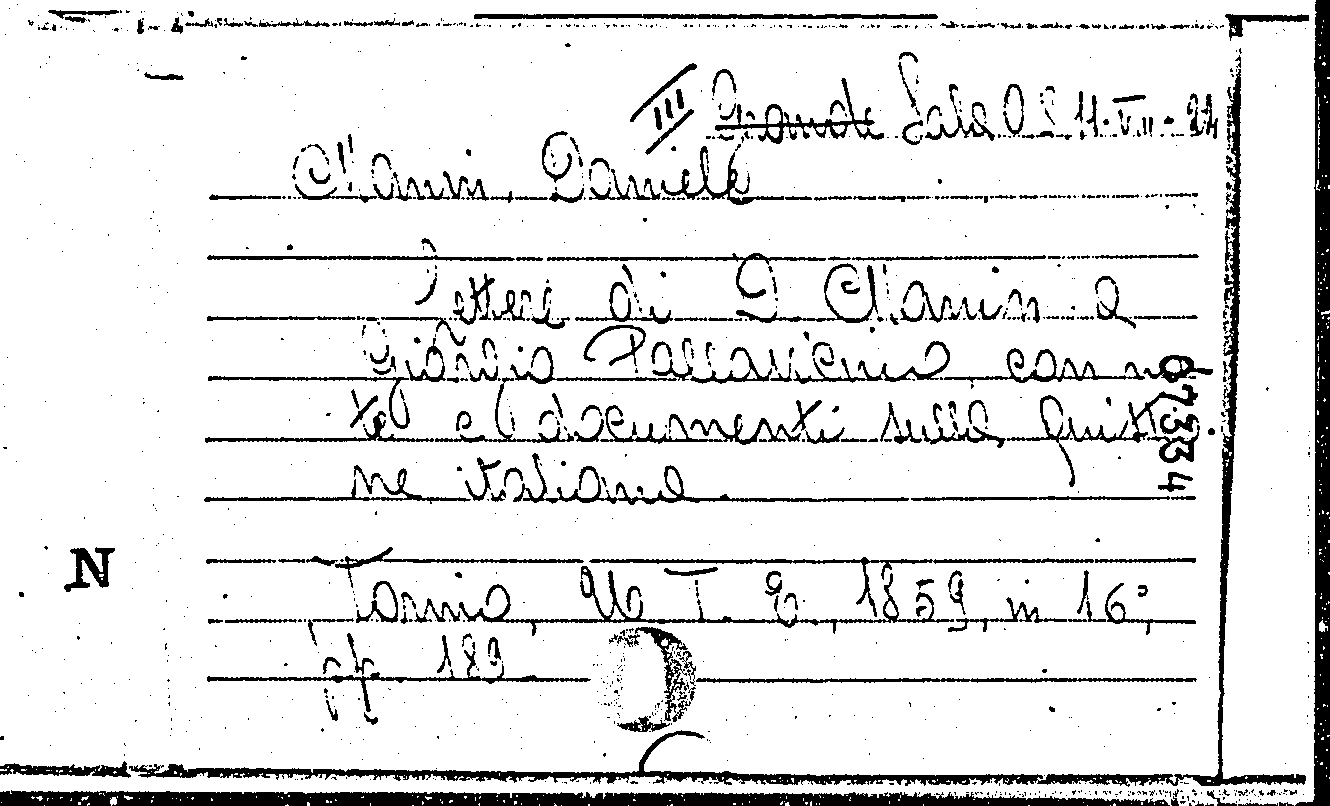 III Grande Sala O S 11-VII-24
Manin, Daniele
Lettere di D. Manin a
Giorgio Pallavicino con no-
te e documenti sulla quistio-
ne italiana.
67334
N
Torino, U. T. E., 1859, in 16°,
pp. 189.